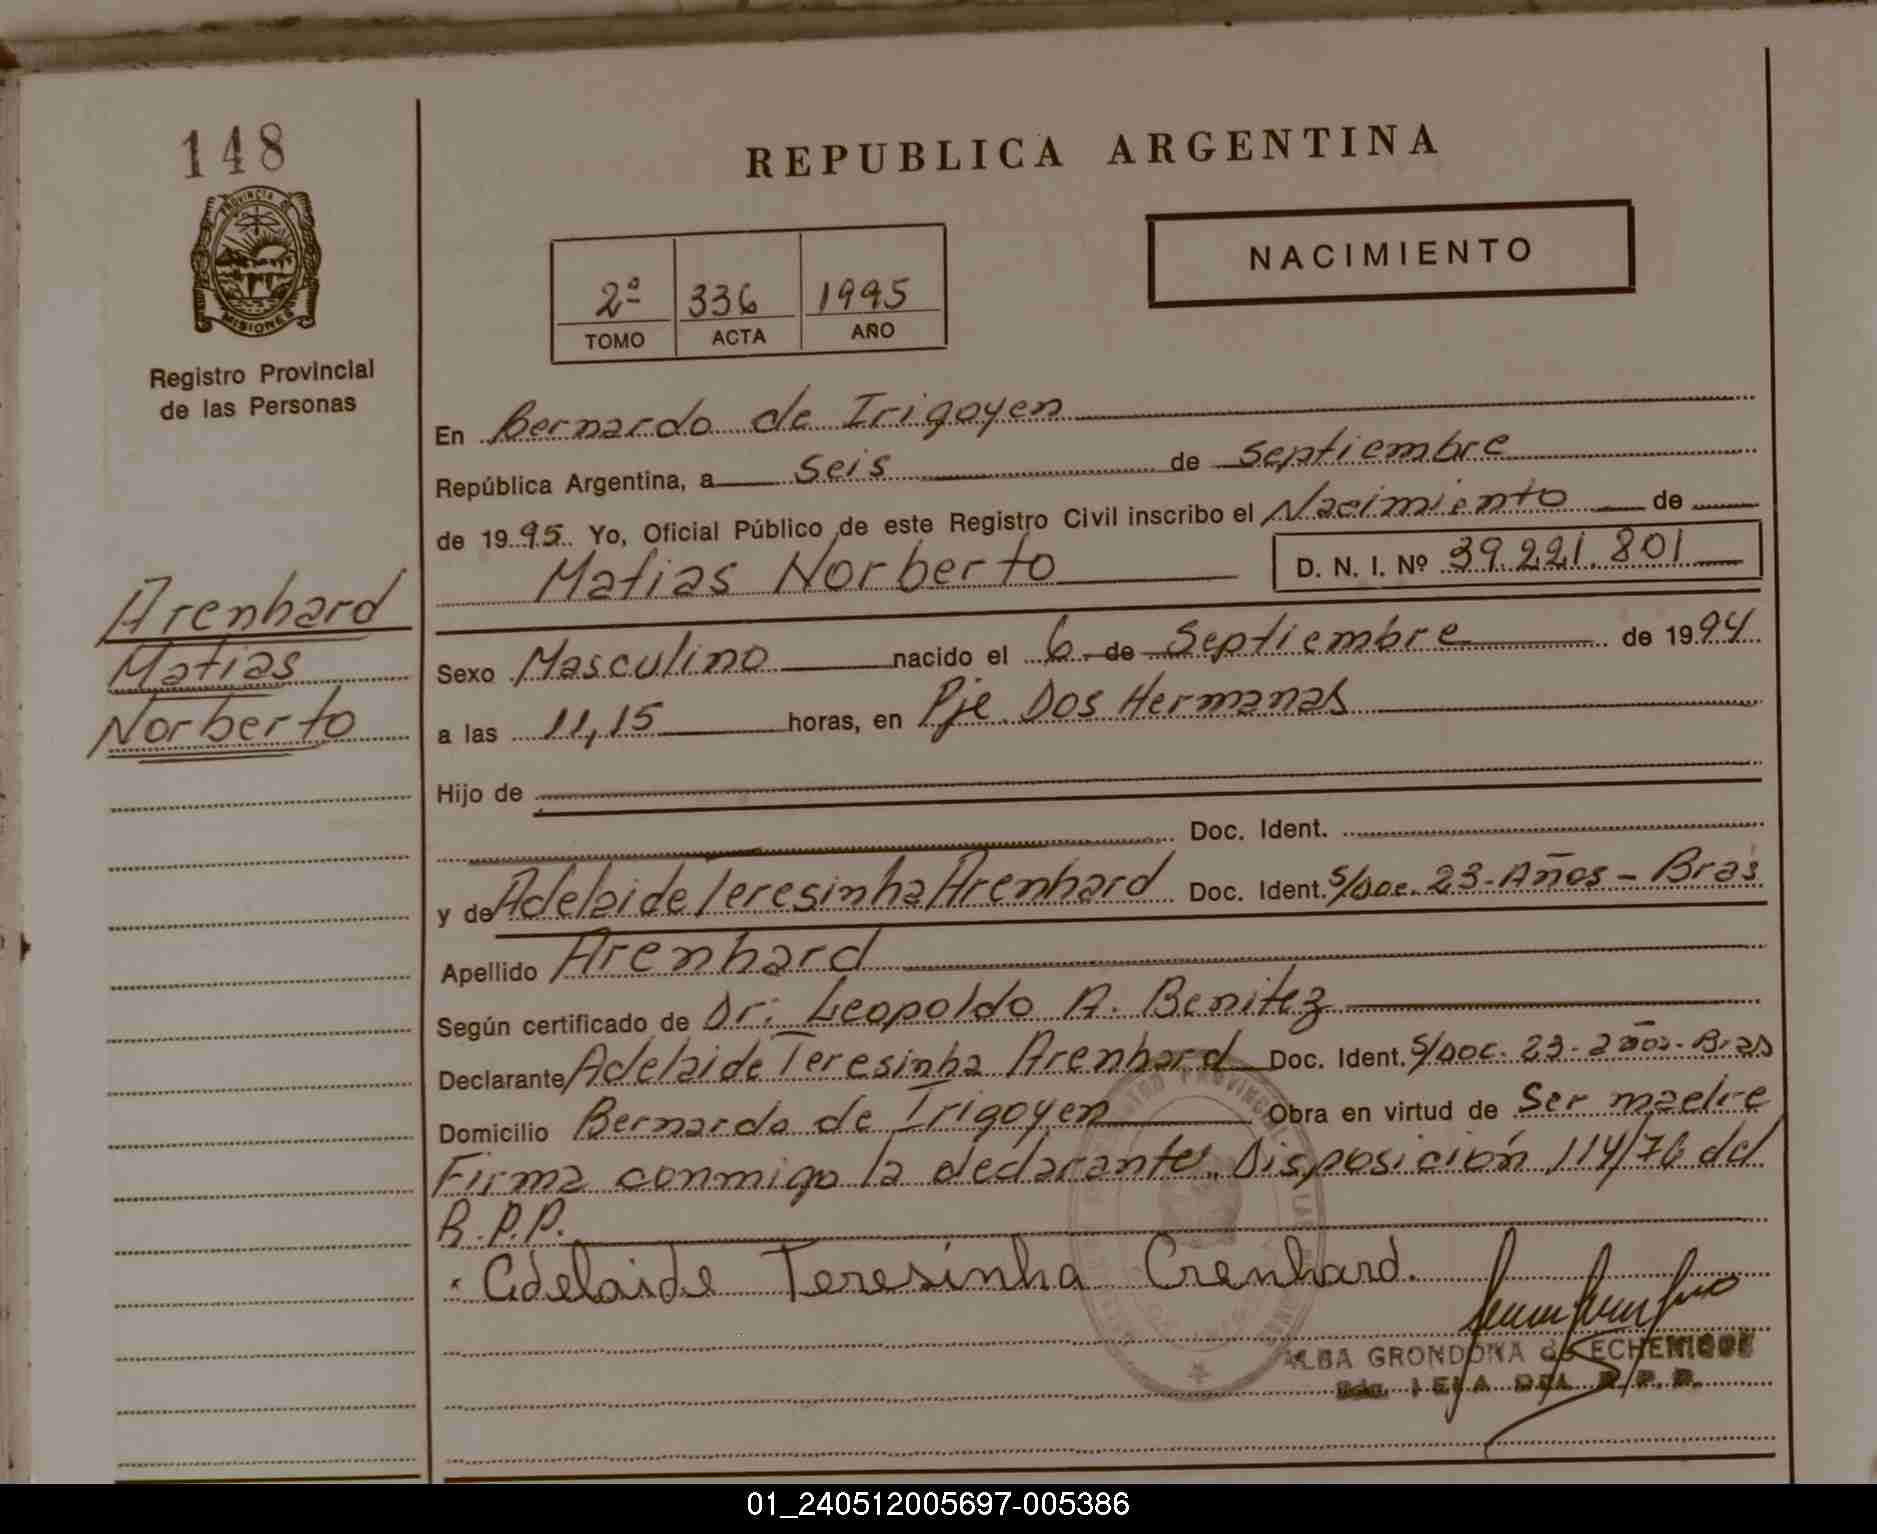 148
PROVINCIA DE
MISIONES
Registro Provincial
de las Personas
Arenhard
Matias
Norberto
REPUBLICA ARGENTINA
NACIMIENTO
2º 336 1995
TOMO ACTA AÑO
En Bernardo de Irigoyen
República Argentina, a seis de septiembre
de 1995 Yo, Oficial Público de este Registro Civil inscribo el Nacimiento de
Matias Norberto D. N. I. Nº 39.221.801
Sexo Masculino nacido el 6 de Septiembre de 1994
a las 11,15 horas, en Pje Dos Hermanas
Hijo de
Doc. Ident.
y de Adelaide Teresinha Arenhard Doc. Ident. s/Doc. 23-Años-Bras
Apellido Arenhard
Según certificado de Dr: Leopoldo A. Benitez
Declarante Adelaide Teresinha Arenhard Doc. Ident. s/Doc. 23-años-Bras
Domicilio Bernardo de Irigoyen Obra en virtud de Ser madre
Firma conmigo la declarante. Disposición 114/76 del
R.P.P.
Adelaide Teresinha Crenhard.
ALBA GRONDONA de ECHENIQUE
R.P.P.
01_240512005697-005386